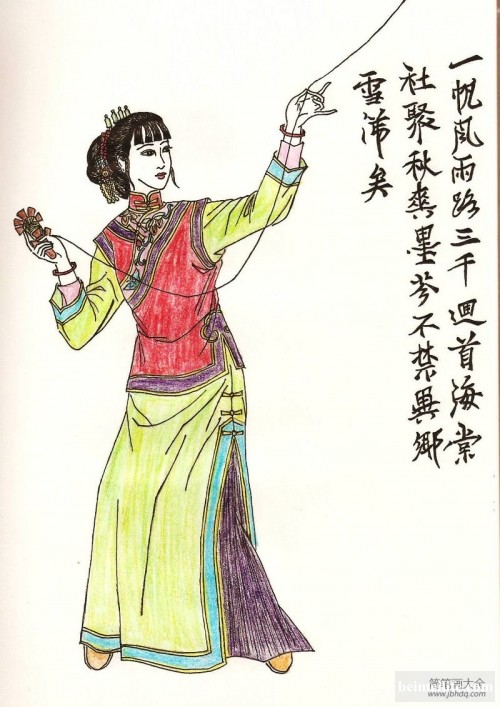 一帆風雨路三千迴首海棠
社聚秋爽墨芩不禁異鄉
雪涕矣
简笔画大全
www.jbhdq.com